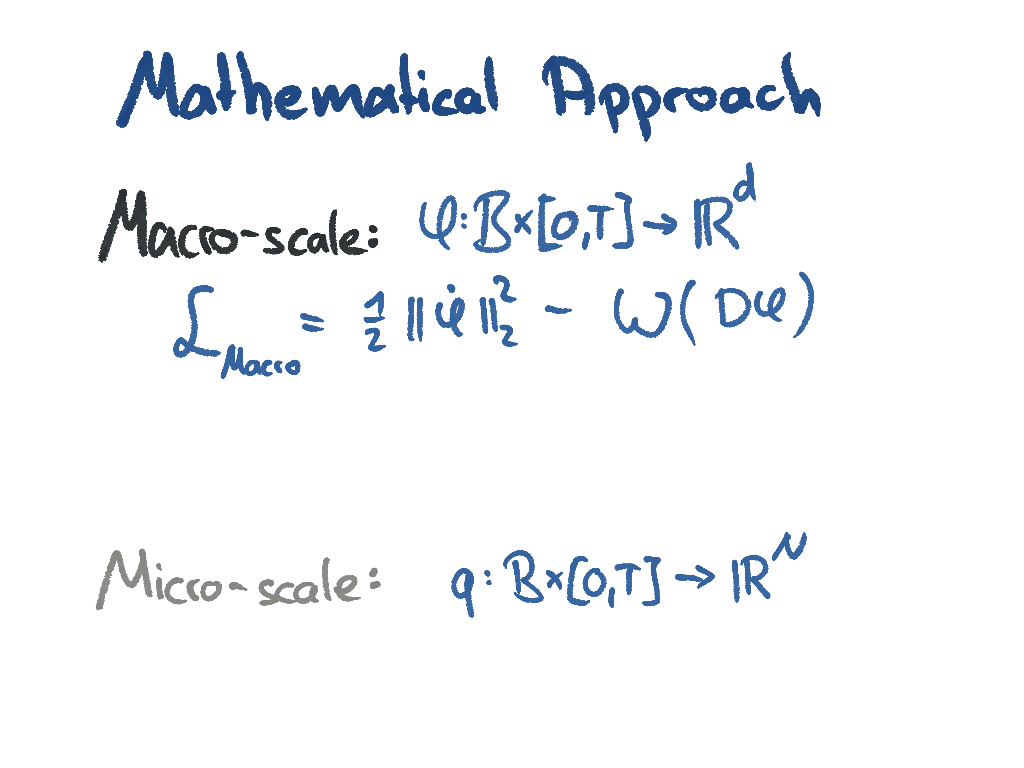 Mathematical Approach
Macro-scale: φ: B×[0,T] → ℝ^d
ℒ_Macro = 1/2 ‖φ̇‖_2^2 - W(Dφ)
Micro-scale: q: B×[0,T] → ℝ^N